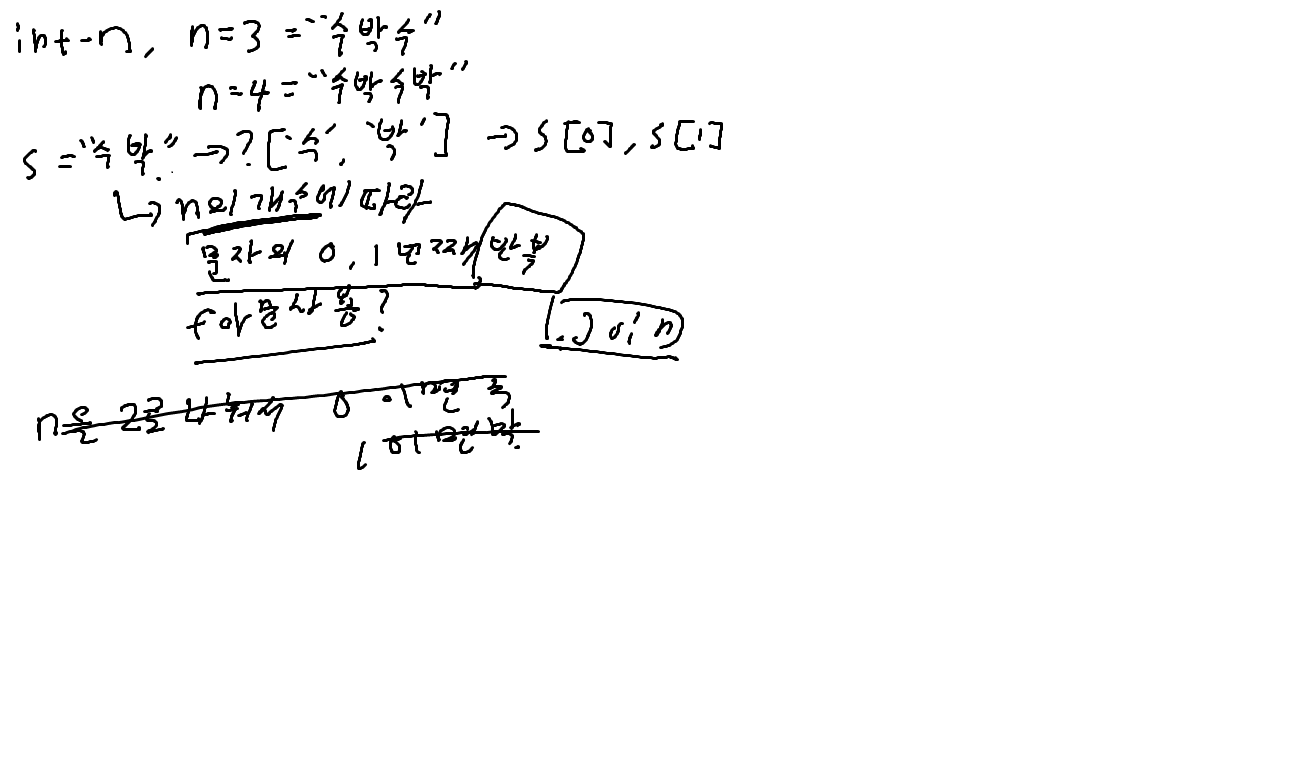 int-n, n=3 = "수박수"
n=4 = "수박수박"
s = "수박" → ? ['수', '박'] → s[0], s[1]
↳ n의 개수에 따라
문자의 0, 1 번째 반복
for문 사용?
.join
n을 2로 나눠서 0 이면 수
1 이면 박